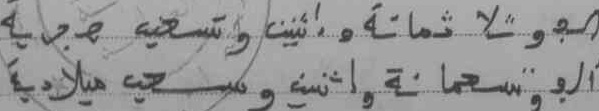 الف و ثلاثمائة واثنين وتسعين هجرية
الف وتسعمائة واثنين وسبعين ميلادية